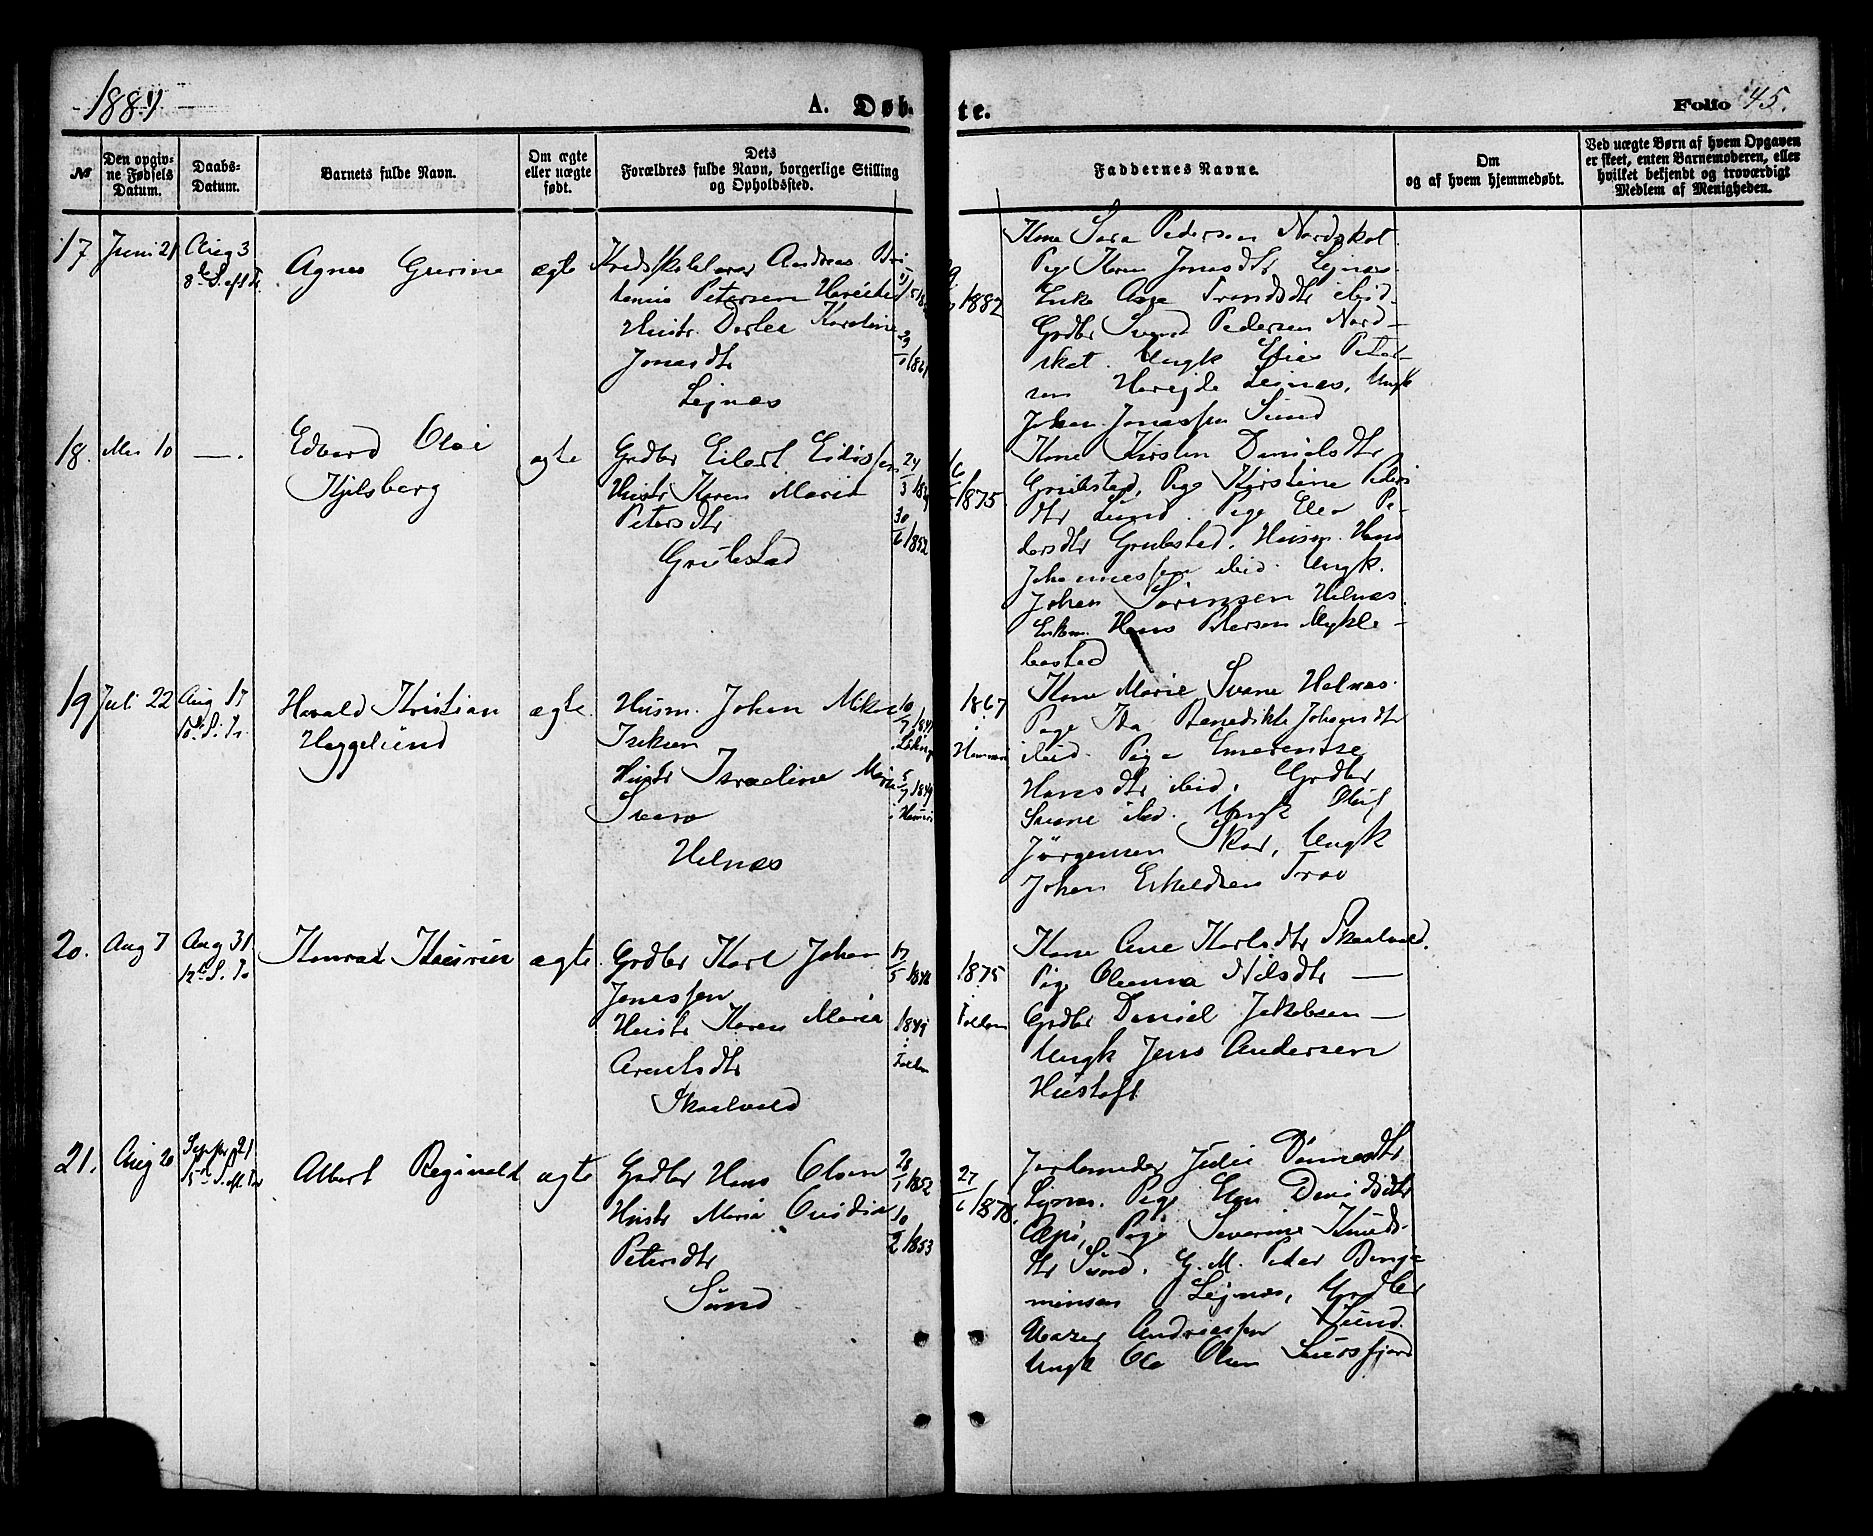 1884
A. Døb-
te.
Folio 45.
№
Den opgiv-
ne Fødsels
Datum.
Daabs-
Datum.
Barnets fulde Navn.
Om ægte
eller uægte
født.
Dets
Forældres fulde Navn, borgerlige Stilling
og Opholdssted.
Faddernes Navne.
Om
og af hvem hjemmedøbt.
Ved uægte Børn af hvem Opgaven
er skeet, enten Barnemoderen, eller
hvilket bekjendt og troværdigt
Medlem af Menigheden.
17
Juni 21
Aug 3
8de S. eft Tr.
Agnes Gurine
ægte
Andreas
Petersen
Hustr. Dortea Karoline
Jonasdtr
Lejnæs
1882
Kone Sara Pedersen Nordskot
Pige Karen Jonasdtr Lejnæs
Enke Ane Trondsdtr ibid-
Grdbr Svend Pedersen Nord-
skot. Ungk Elias Peter-
sen Lejnæs, Ungk
Johan Jonassen Sund
18.
Mai 10
—.
Edvard Olai
Kjelsberg
ægte
Grdbr Eilert
Hustr Karen Maria
Petersdtr
Grubstad
24/3
30/6 1852
1875
Kone Kirsten Danielsdtr
Grubstad, Pige Kirstine Peders
dtr Sund. Pige Elen Pe-
dersdtr Grubstad. Husm. Hans
Johannessen ibid. Ungk.
Johan Sörensen Helnæs.
Enkem. Hans Petersen Mykle-
bostad
19
Juli 22
Aug 17
10de S. Tr.
Harald Kristian
Heggelund
ægte.
Husm. Johan Mikal
Eriksen
Hustr Israeline Marie
Svane
Helnæs
1867
i
Hammerø
Kone Marie Svane Helnæs.
Pige Ida Benedikte Johansdtr
ibid. Pige Emerentse
Hansdtr ibid. Grdbr
Svane ibid. Ungk Oluf
Jörgensen Skar, Ungk
Johan Eskildsen
20.
Aug 7
Aug 31.
12te S. Tr
Konrad
ægte.
Grdbr Karl Johan
Jonassen
Hustr Karen Maria
Arentsdtr
Skaalvold
17/5 1848
1849
i
Folden
1875
i
Folden
Kone Ane Karlsdtr Skaalvold.
Pige Oleanna Nilsdtr —
Grdbr Daniel Jakobsen —
Ungk Jens Andersen
Hustoft
21.
Aug 20
Septbr 21
15de S. eft Tr
Albert Reginald
ægte
Grdbr Hans Olsen
Hustr Maria Ovidia
Petersdtr
Sund
28/1 1852
10/2 1853
27/6 1878.
Jordemoder Julie
Lejnæs. Pige Elen Davidsdtr
Pige Severine Knuds-
dtr Sund. G. M. Peder Benja-
minsen Lejnæs, Grdbr
Andreassen Sund.
Ungk Ole Olsen